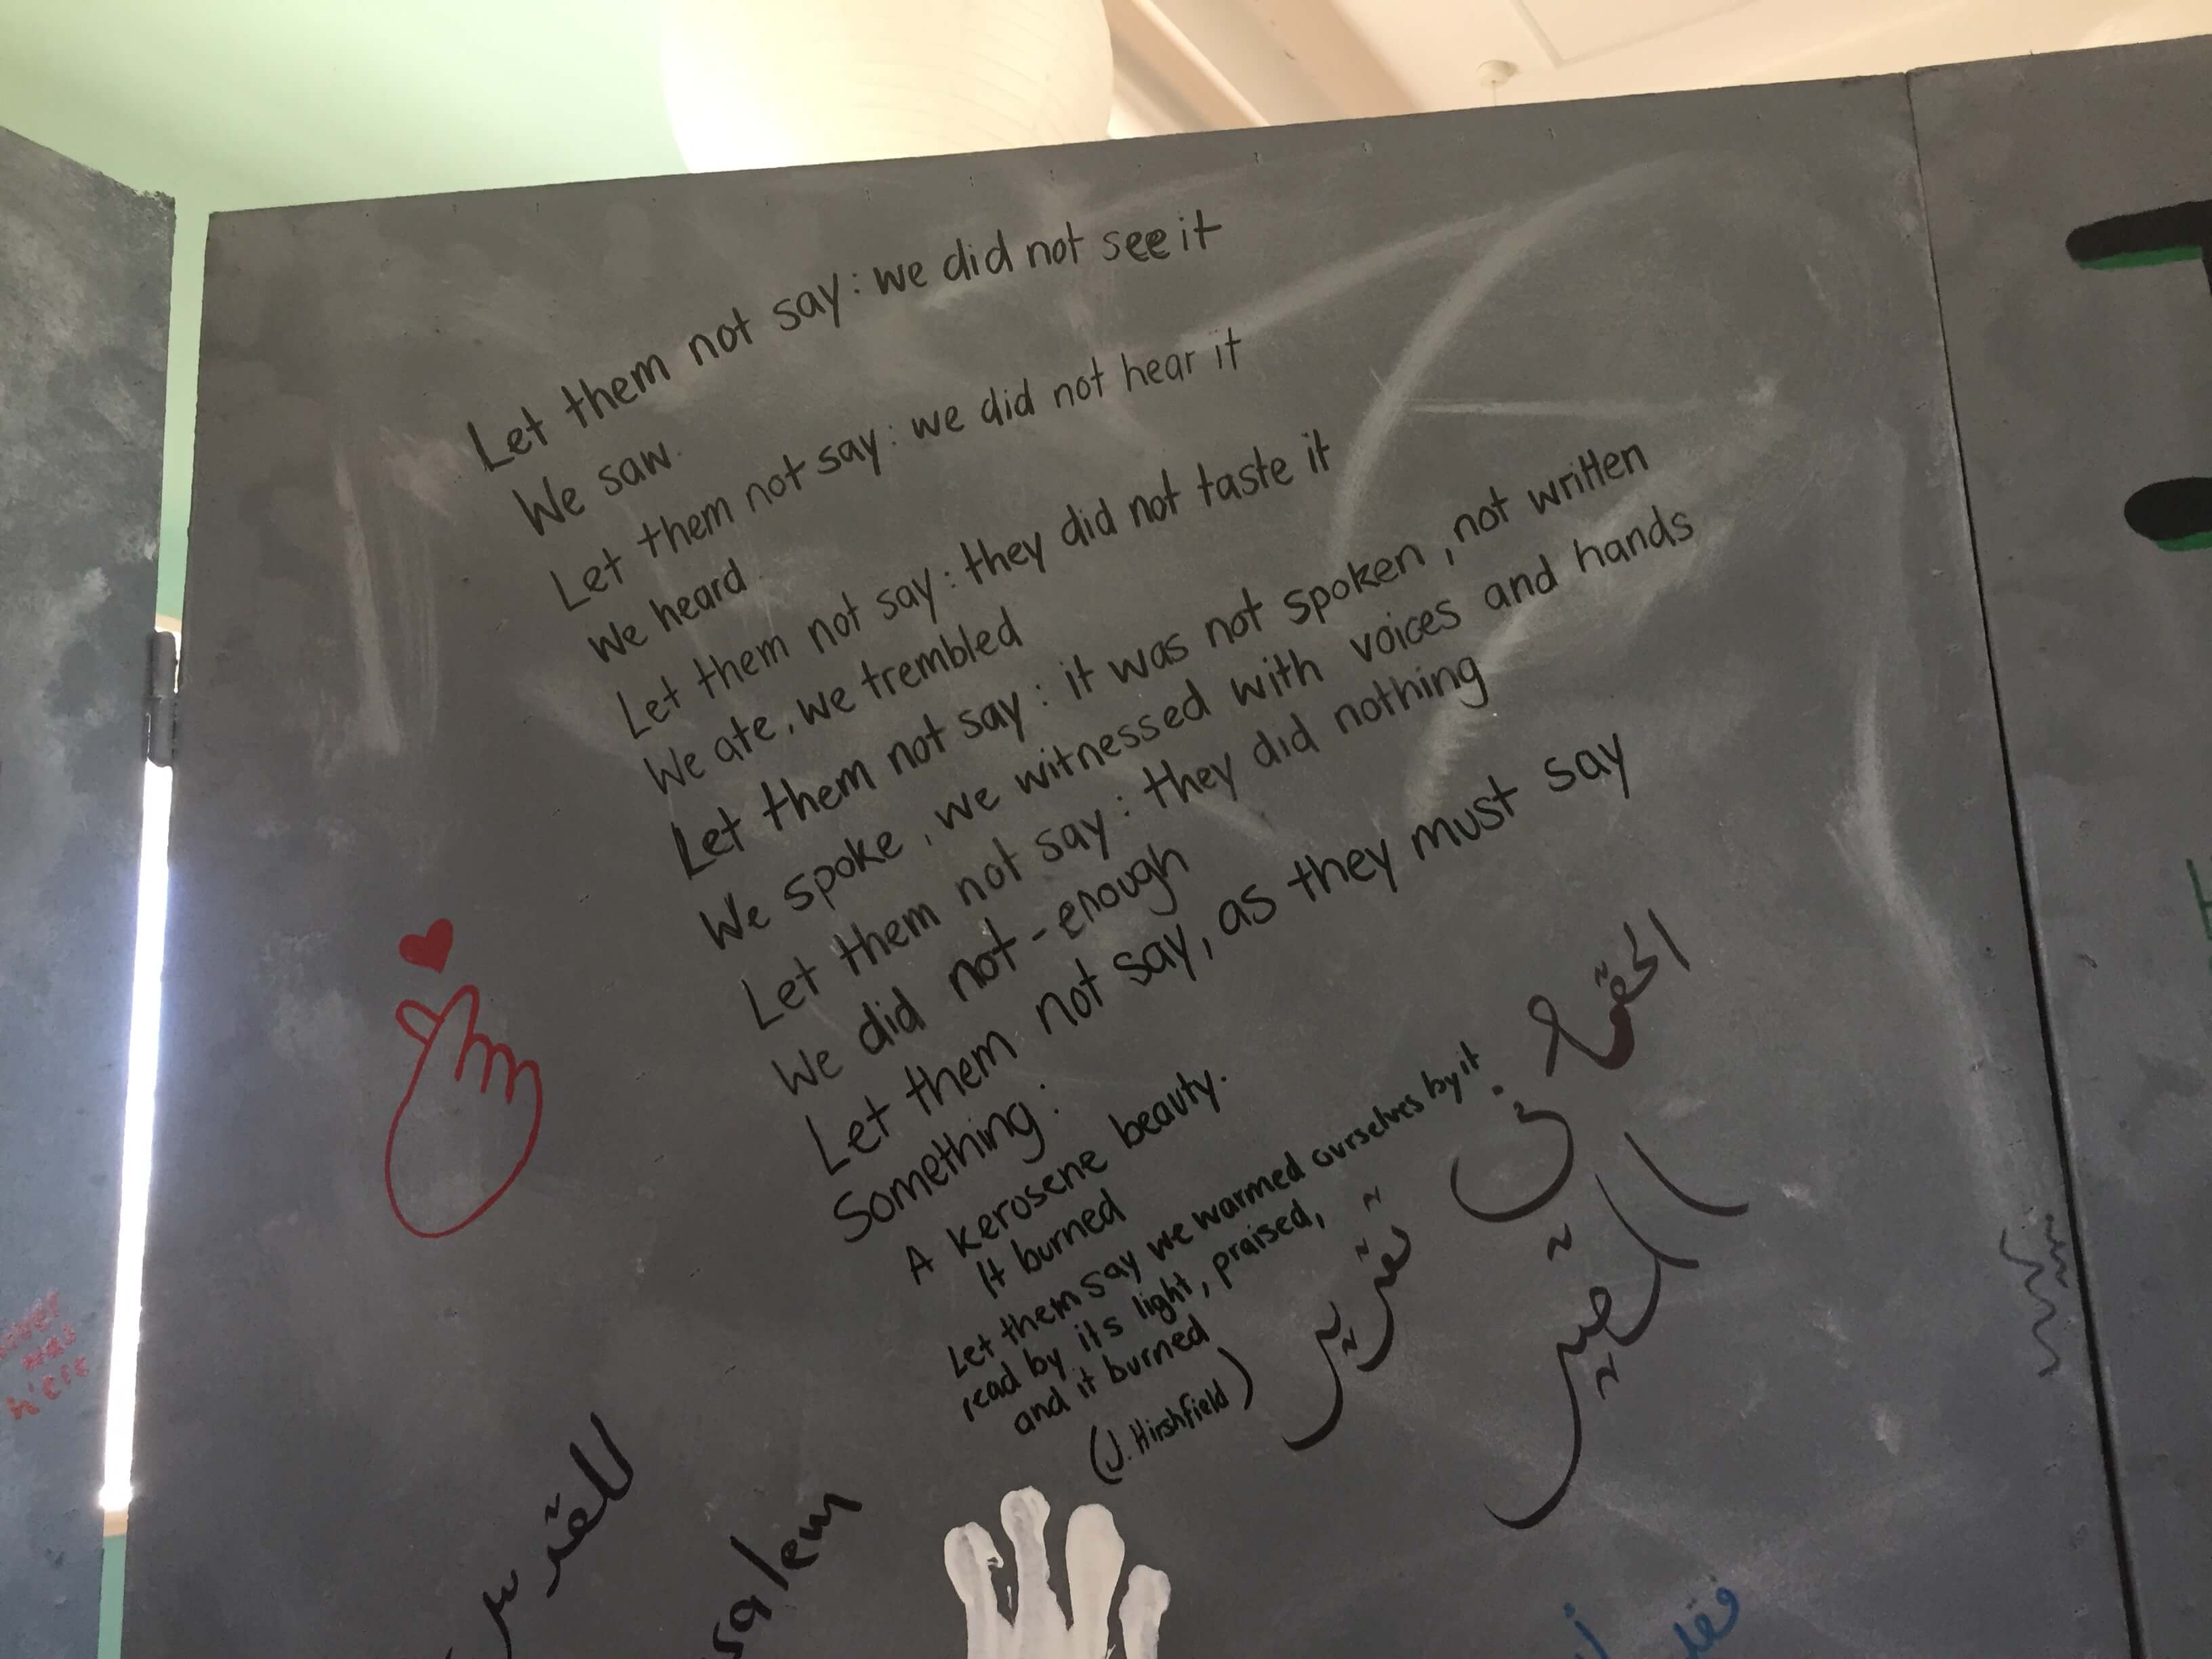 Let them not say: we did not see it
We saw.
Let them not say: we did not hear it
We heard.
Let them not say: they did not taste it
We ate, we trembled
Let them not say: it was not spoken, not written
We spoke, we witnessed with voices and hands
Let them not say: they did nothing
We did not-enough
Let them not say, as they must say
Something:
A kerosene beauty.
It burned
Let them say we warmed ourselves by it
read by its light, praised,
and it burned
(J. Hirshfield)
الحق
في
تقرير
المصير
للقدس
salem
was
here
فقد